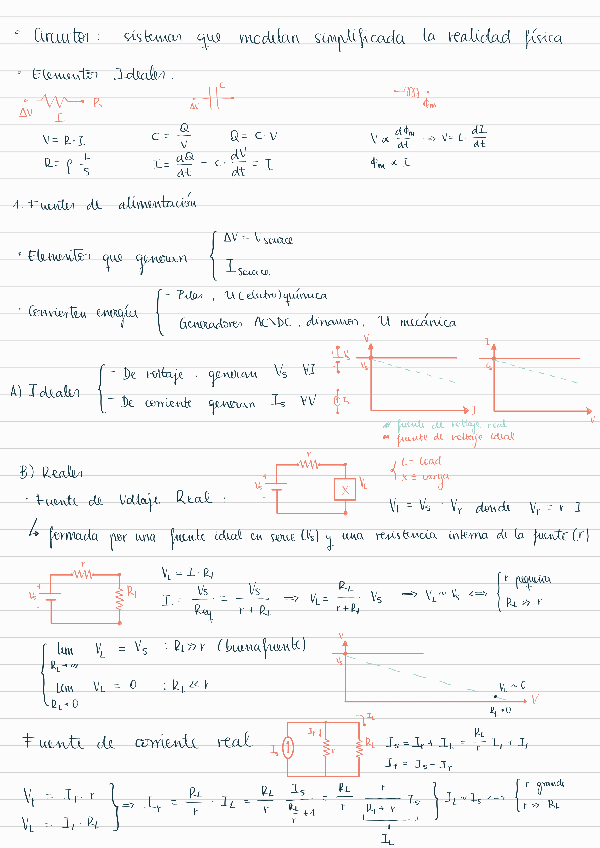 · Circuitos: sistemas que modelan simplificada la realidad física
· Elementos Ideales.
ΔV I R
Δv C
Φm
V = R · I
R = ρ · L/S
C = Q/V Q = C · V
i = dQ/dt = C · dV/dt = I
V ∝ dΦm/dt → V = L dI/dt
Φm ∝ i
1. Fuentes de alimentación
· Elementos que generan { ΔV = V source
I source
· Convierten energía { - Pilas, U (electro)química
Generadores AC\DC, dinamos, U mecánica
A) Ideales { - De voltaje, generan Vs ∀I
- De corriente generan Is ∀V
Vs
Is
V
Vs
I
I
V
fuente de voltaje real
fuente de voltaje ideal
B) Reales
· Fuente de Voltaje Real.
Vs r X VL
L = Load
VL = Vs - Vr donde Vr = r · I
↳ formada por una fuente ideal en serie (Vs) y una resistencia interna de la fuente (r)
Vs r RL
VL = I · RL
I = Vs/Req = Vs/(r + RL) → VL = RL/(r + RL) Vs → VL ≈ Vs ⟺ { r pequeña
RL ≫ r
lim RL→∞ VL = Vs : RL ≫ r (buena fuente)
lim RL→0 VL = 0 : RL ≪ r
V
Vs
VL ≈ 0
RL → 0
V
Fuente de corriente real
Is Ir r RL IL
Is = Ir + IL = RL/r IL + IL
IL = Is - Ir
VL = Ir · r
VL = IL · RL
} ⟹ Ir = RL/r · IL = RL/r Is/(RL/r + 1) = RL/r r/(RL + r) Is } IL ≈ Is ⟺ { r grande
r ≫ RL
IL